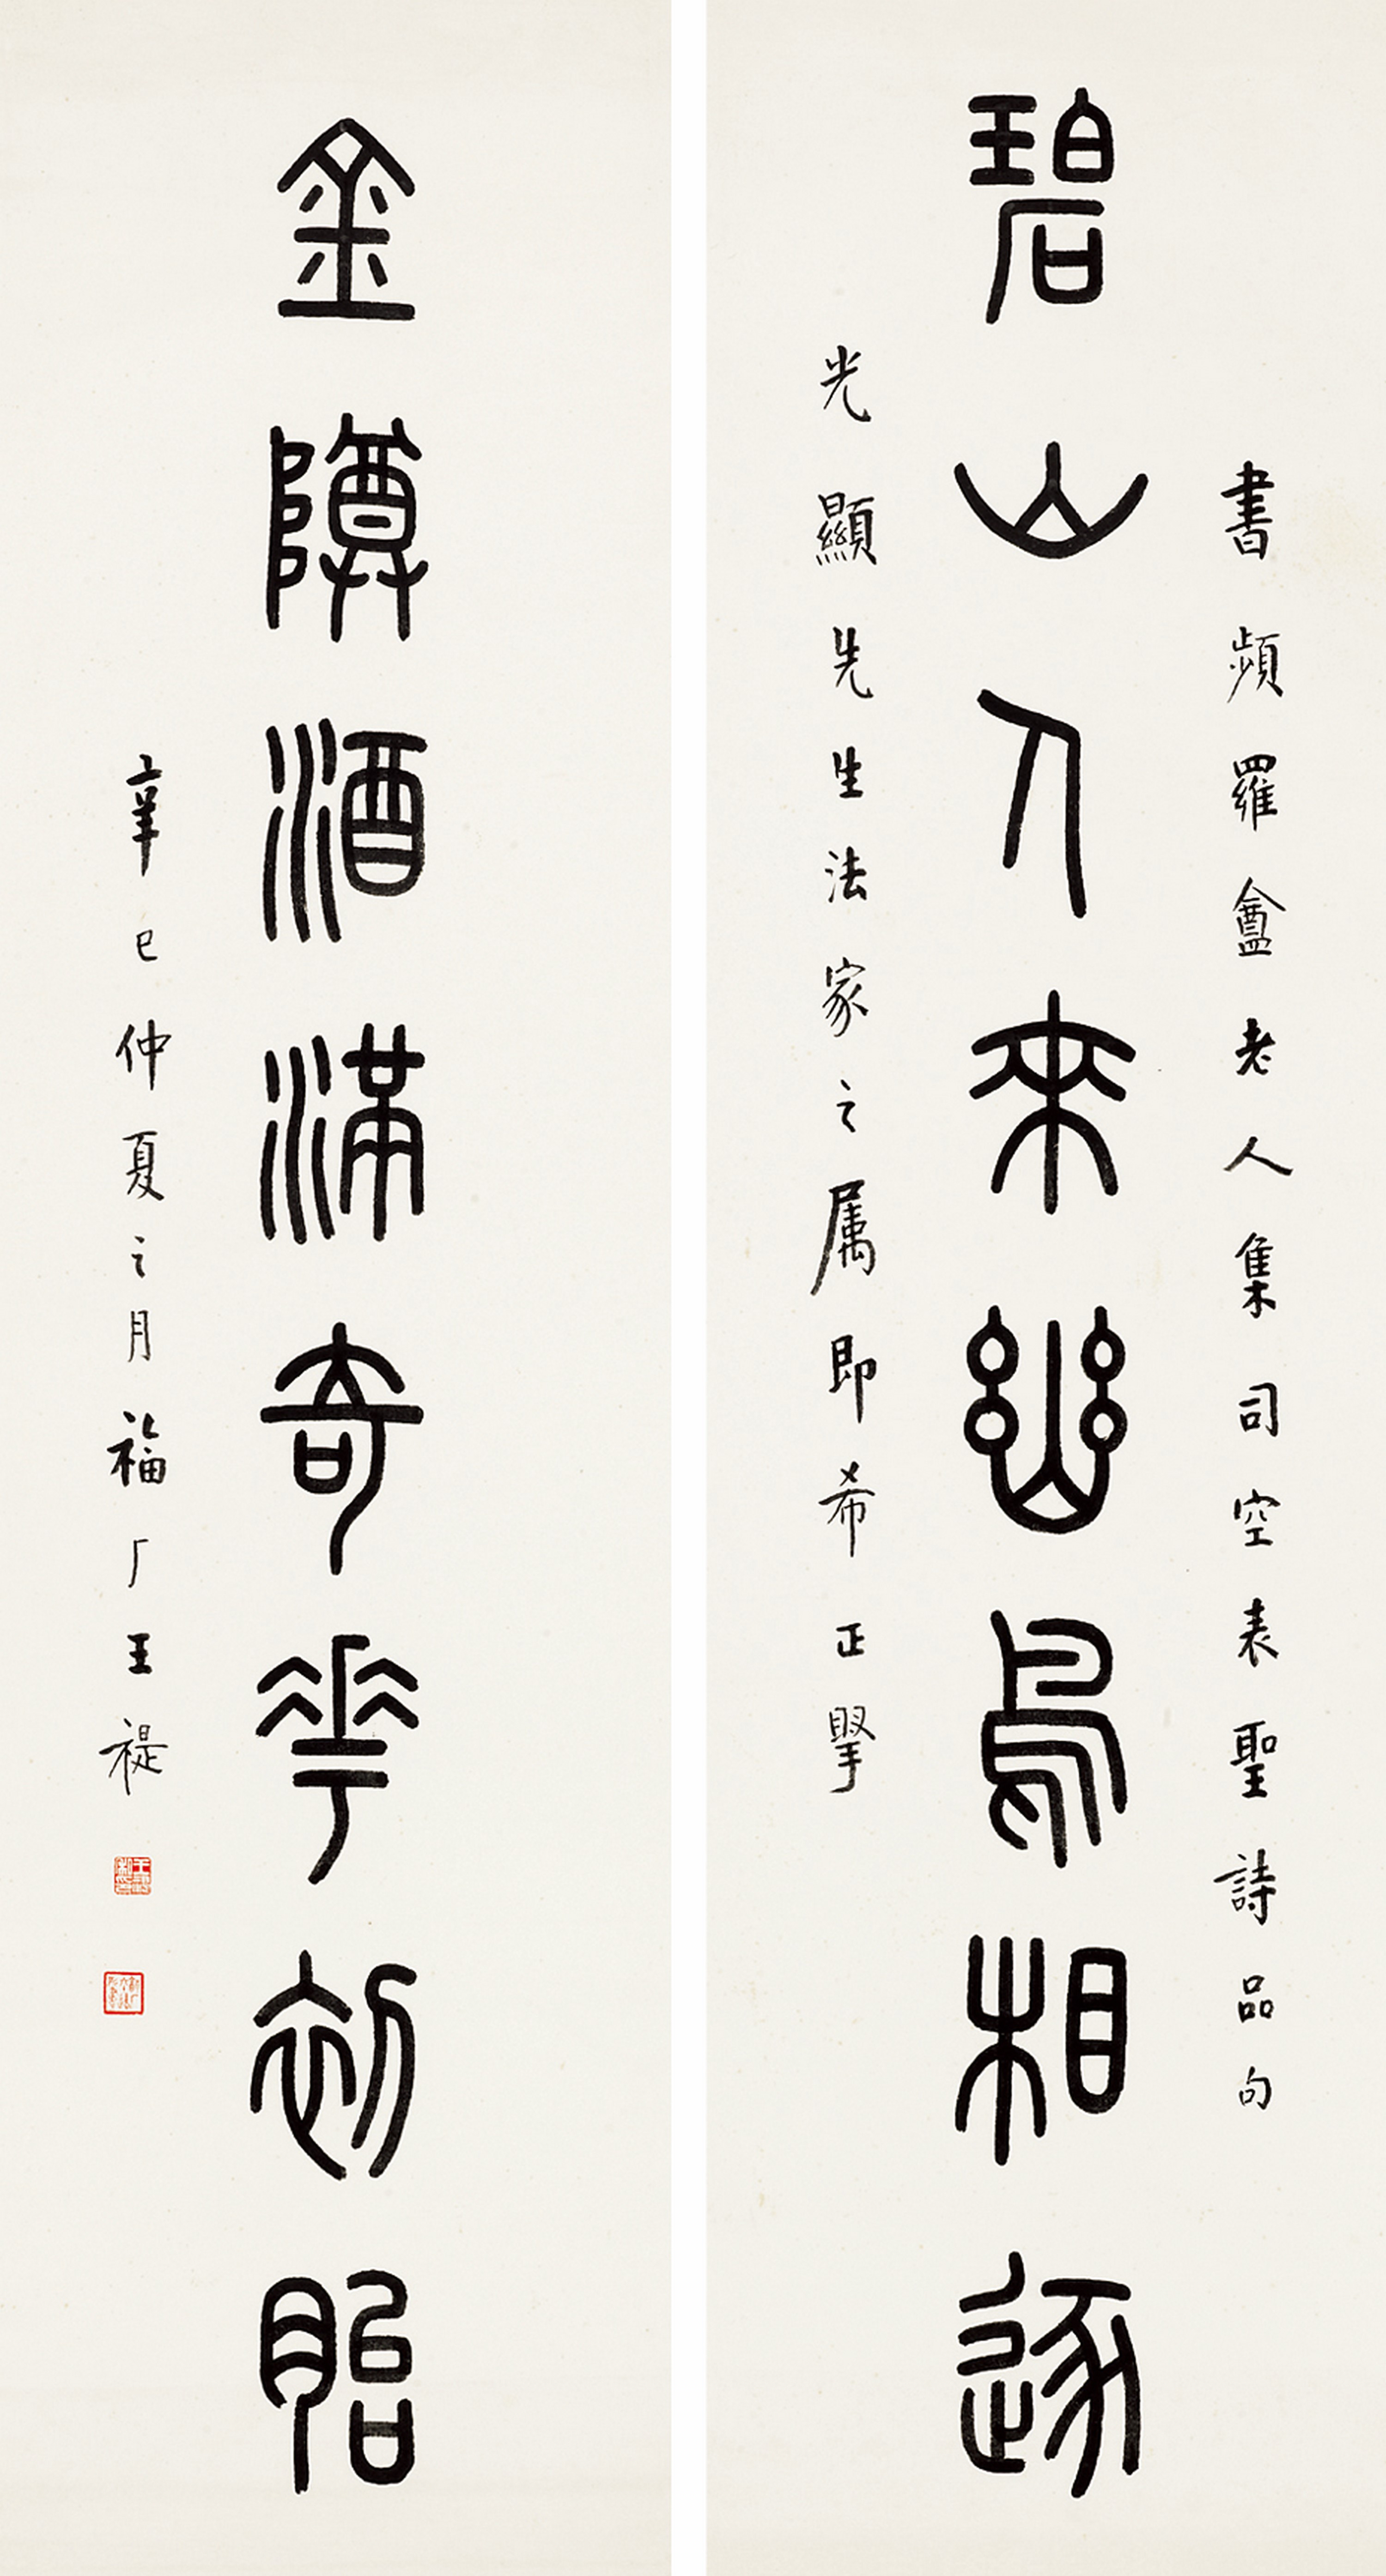 書頻羅盦老人集司空表聖詩品句
碧山人來幽鳥相逐
光顯先生法家之属即希正掔
金尊酒滿奇花初胎
辛巳仲夏之月福厂王禔